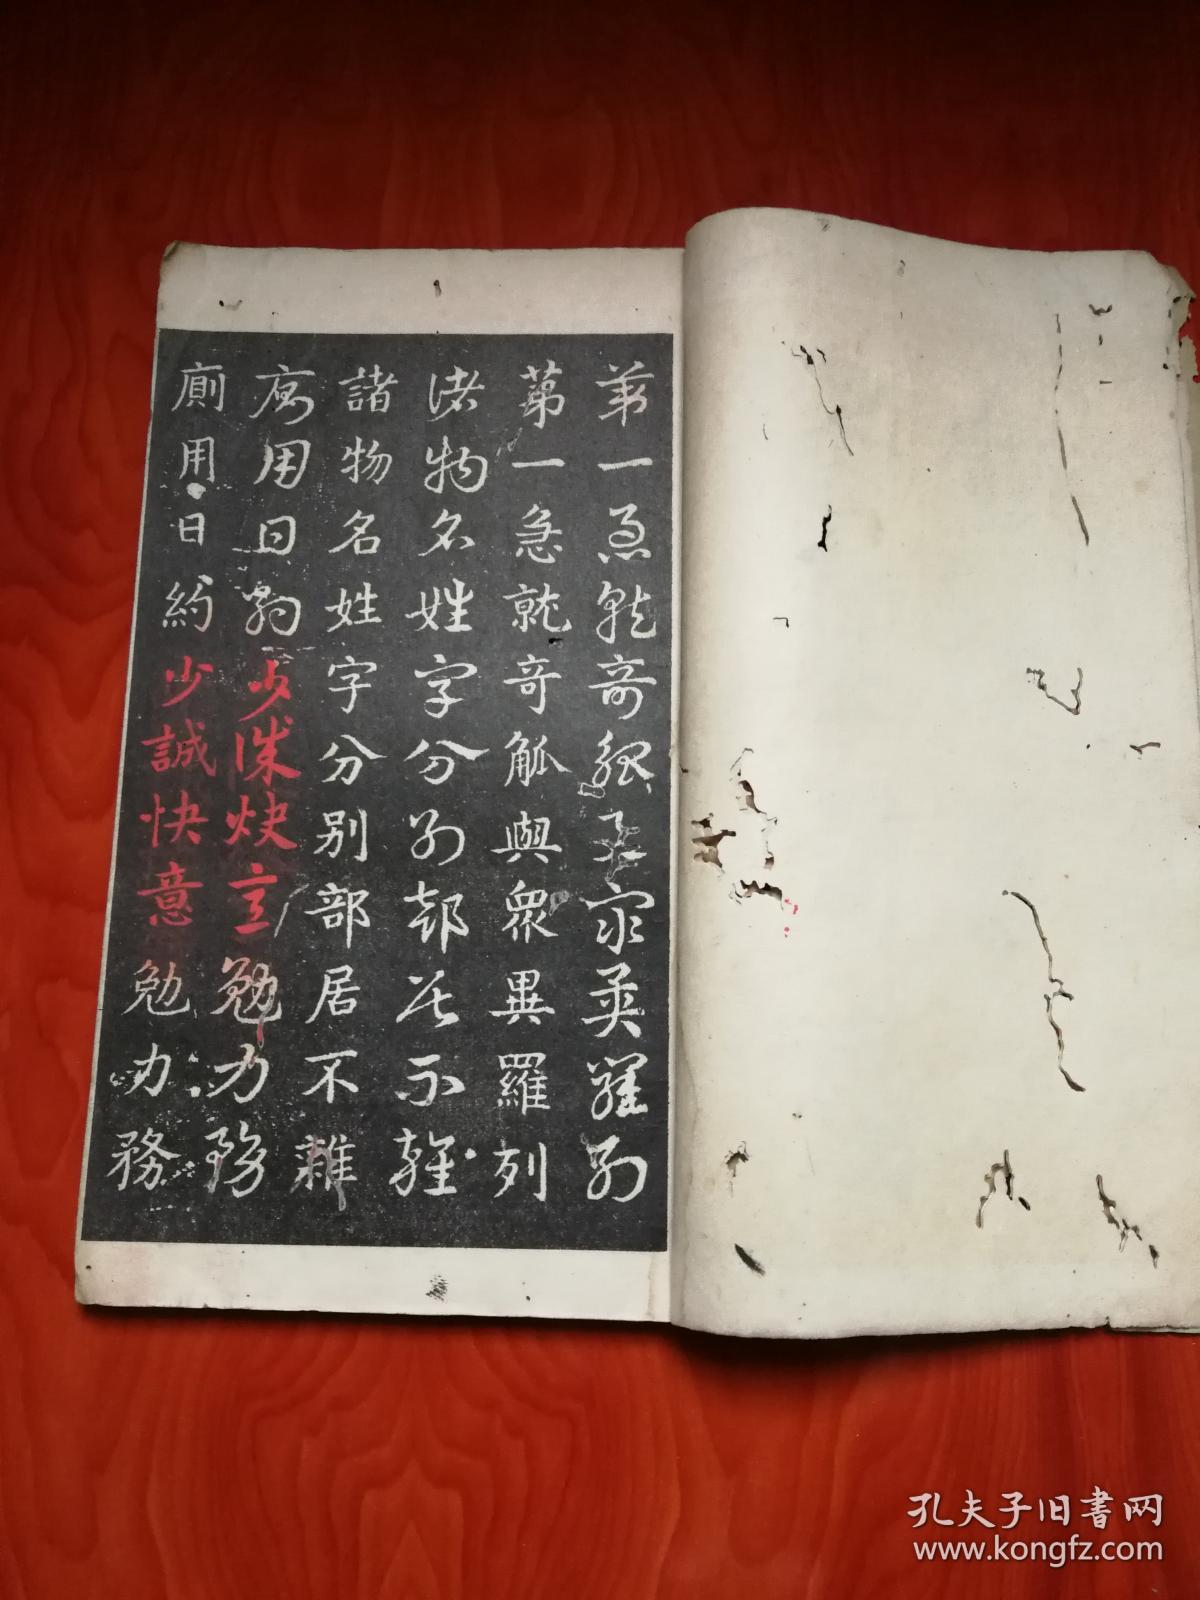 第一急就奇觚與衆異羅列
第一急就奇觚與衆異羅列
諸物名姓字分别部居不雜
諸物名姓字分别部居不雜
廁用日約少誠快意勉力務
廁用日約少誠快意勉力務
孔夫子旧書网
www.kongfz.com